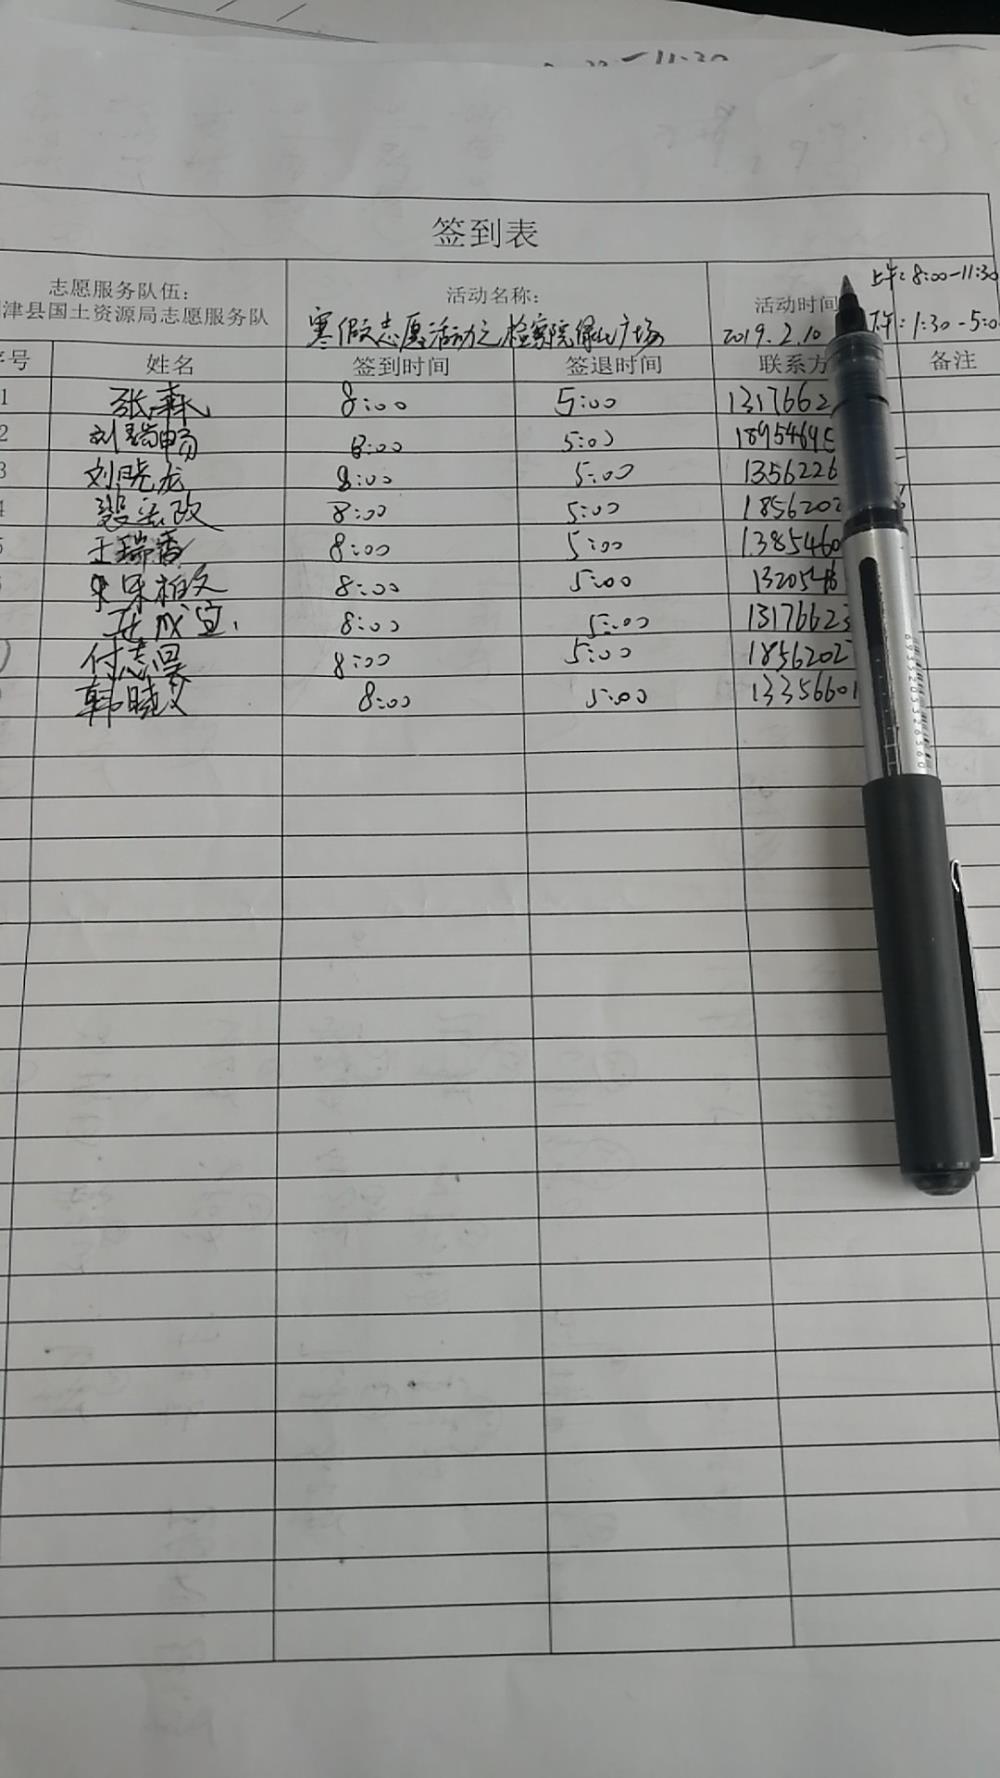 11:30
签到表
志愿服务队伍：
津县国土资源局志愿服务队
活动名称：
寒假志愿活动之检察院保山广场
活动时间
2019.2.10
上午：8:00-11:30
下午：1:30-5:0
序号 姓名 签到时间 签退时间 联系方 备注
1 张森 8:00 5:00 1317662
2 刘瑞畅 8:00 5:00 1895464
3 刘晓龙 8:00 5:00 1356226
8:00 5:00 1856202
王瑞香 8:00 5:00 1385460
8:00 5:00 132054
成宜 8:00 5:00 13176623
付志昊 8:00 5:00 1856202
韩晓义 8:00 5:00 13356601
6935205326560